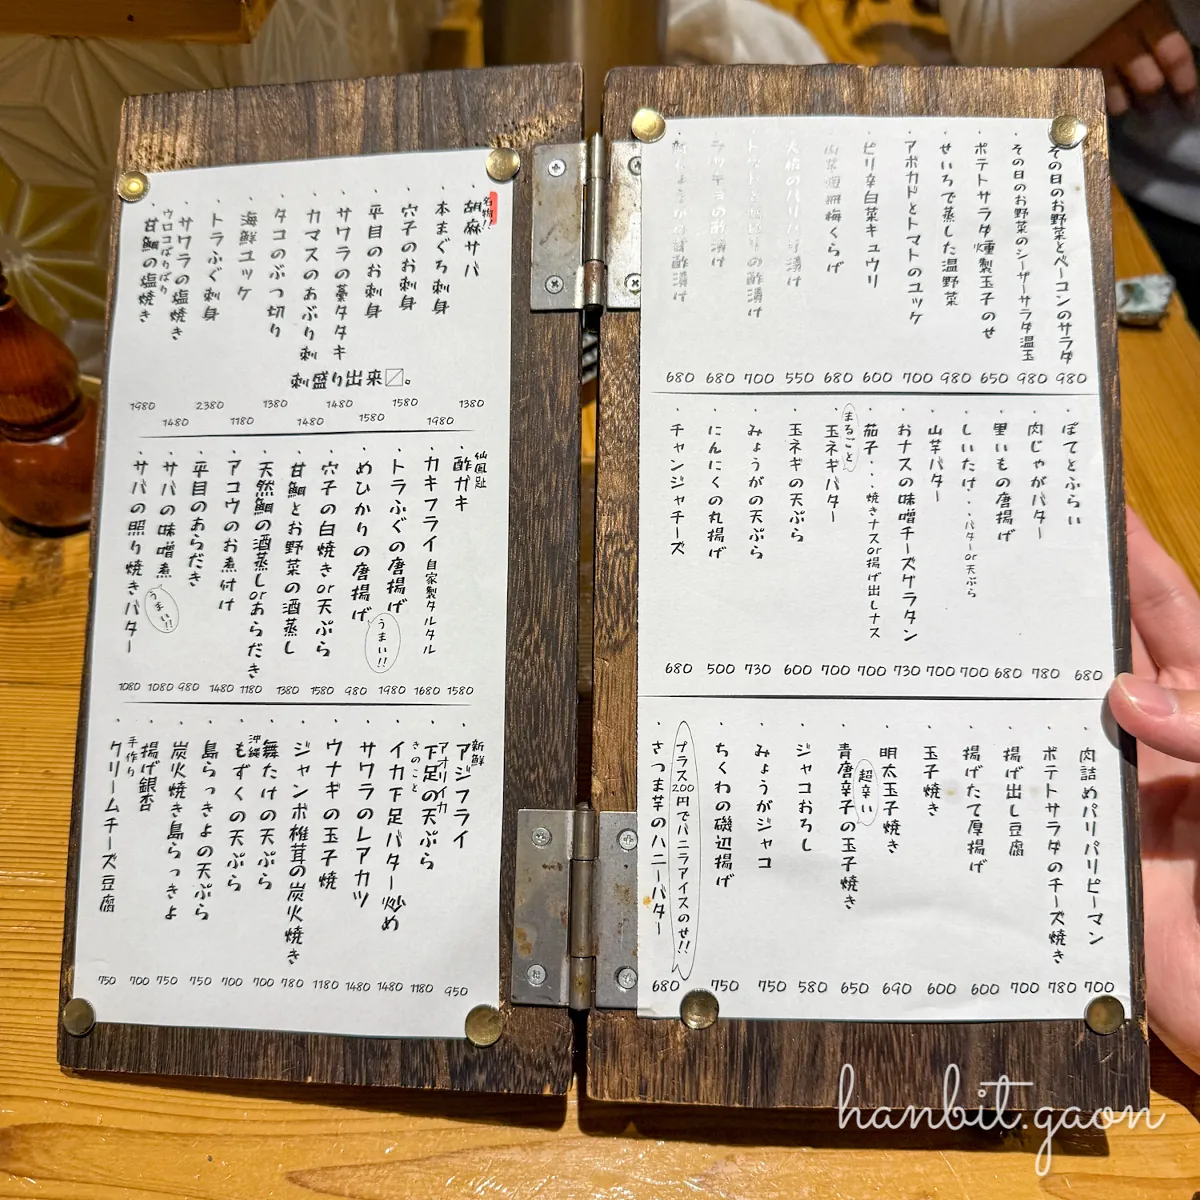 その日のお野菜とベーコンのサラダ 980
その日のお野菜のシーザーサラダ温玉 980
ポテトサラダ燻製玉子のせ 650
せいろで蒸した温野菜 980
アボカドとトマトのユッケ 700
ピリ辛白菜キュウリ 600
梅くらげ 680
大根のパリパリ漬け 550
の酢漬け 700
の酢漬け 680
甘酢漬け 680
ぽてとふらい 680
肉じゃがバター 780
里いもの唐揚げ 680
しいたけ・・バターor天ぷら 700
山芋バター 700
おナスの味噌チーズグラタン 730
茄子・・・焼きナスor揚げ出しナス 700
まるごと
玉ネギバター 700
玉ネギの天ぷら 600
みょうがの天ぷら 730
にんにくの丸揚げ 500
チャンジャチーズ 680
肉詰めパリパリピーマン 700
ポテトサラダのチーズ焼き 780
揚げ出し豆腐 700
揚げたて厚揚げ 600
玉子焼き 600
明太玉子焼き 690
超辛い
青唐辛子の玉子焼き 650
ジャコおろし 580
みょうがジャコ 750
ちくわの磯辺揚げ 750
プラス200円でバニラアイスのせ!!
さつま芋のハニーバター 680
名物!!
胡麻サバ 1380
本まぐろ刺身 1980
穴子のお刺身 1580
平目のお刺身 1580
サワラの藁タタキ 1480
カマスのあぶり刺 1480
タコのぶつ切り 1380
海鮮ユッケ 1180
トラふぐ刺身 2380
サワラの塩焼き 1480
ウロコぱりぱり
甘鯛の塩焼き 1980
刺盛り出来〼。
仙鳳趾
酢ガキ 1580
カキフライ 自家製タルタル 1680
トラふぐの唐揚げ 1980
うまい!!
めひかりの唐揚げ 980
穴子の白焼きor天ぷら 1580
甘鯛とお野菜の酒蒸し 1380
天然鯛の酒蒸しorあらだき 1180
アコウのお煮付け 1480
平目のあらだき 980
サバの味噌煮 1080
うまい!!
サバの照り焼きバター 1080
新鮮
アジフライ 950
アオリイカ
下足の天ぷら 1180
きのこと
イカ下足バター炒め 1480
サワラのレアカツ 1480
ウナギの玉子焼 1180
ジャンボ椎茸の炭火焼き 780
舞たけの天ぷら 700
沖縄
もずくの天ぷら 700
島らっきょの天ぷら 750
炭火焼き島らっきょ 750
揚げ銀杏 700
手作り
クリームチーズ豆腐 750
hanbit.gaon